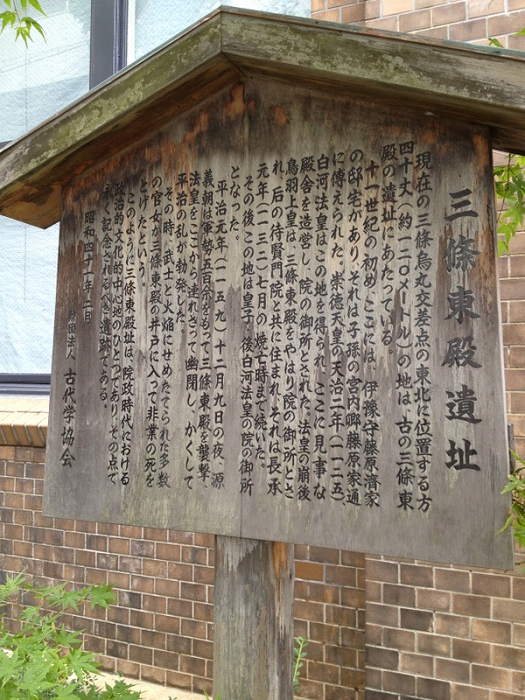 三條東殿遺址
現在の三條烏丸交差点の東北に位置する方
四十丈(約一二〇メートル)の地は、古の三條東
殿の遺址にあたっている。
十一世紀の初め、ここには、伊豫守藤原濟家
の邸宅があり、それは子孫の宮内卿藤原家通
に傳えられた。崇徳天皇の天治二年(一一二五)、
白河法皇はこの地を得られ、ここに見事な
殿舎を造営し、院の御所とされた。法皇の崩後
鳥羽上皇は、三條東殿をやはり院の御所とさ
れ、后の待賢門院と共に住まれ、それは長承
元年(一一三二)七月の焼亡時まで続いた。
その後、この地は皇子・後白河法皇の院の御所
となった。
平治元年(一一五九)十二月九日の夜、源
義朝は軍勢五百余をもって三條東殿を襲撃、
法皇をここから連れさって幽閉し、かくして
平治の乱が勃発した。
その時、武士と火焔にせめたてられた多数
の官女が三條東殿の井戸に入って非業の死を
とげたという。
このように三條東殿址は、院政時代における
政治的文化的中心地のひとつであり、その点で
永く記念されるべき遺跡である。
昭和四十一年二月
財団法人 古代学協会